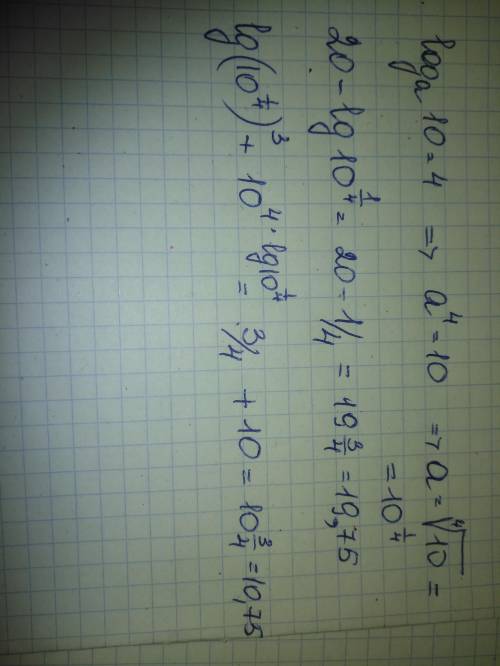 log_a 10 = 4 => a^4 = 10 => a = ∜10 =
= 10^(1/4)
20 - lg 10^(1/4) = 20 - 1/4 = 19 3/4 = 19,75
lg(10^(1/4))^3 + 10^(4·lg10^(1/4)) = 3/4 + 10 = 10 3/4 = 10,75